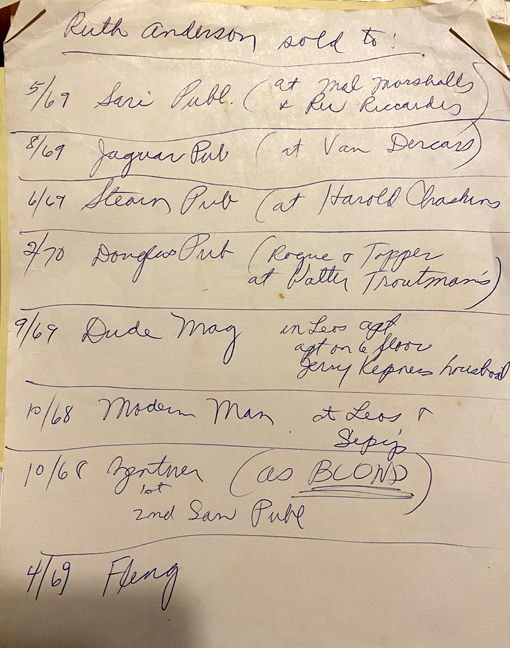 Ruth Anderson sold to:
5/69 Sari Publ. (at Mal Marshalls
& Riccardis)
8/69 Jaguar Pub (at Van Dercars)
6/69 Stearn Pub (at Harold Chaskins
2/70 Douglas Pub (Rogue & Topper
at Walter Troutman's)
9/69 Dude Mag in Leos apt
apt on 6 floor
Jerry houseboat
10/68 Modern Man at Leos &
10/68 (as BLOND)
1st
2nd Sari Publ
4/69 Fling